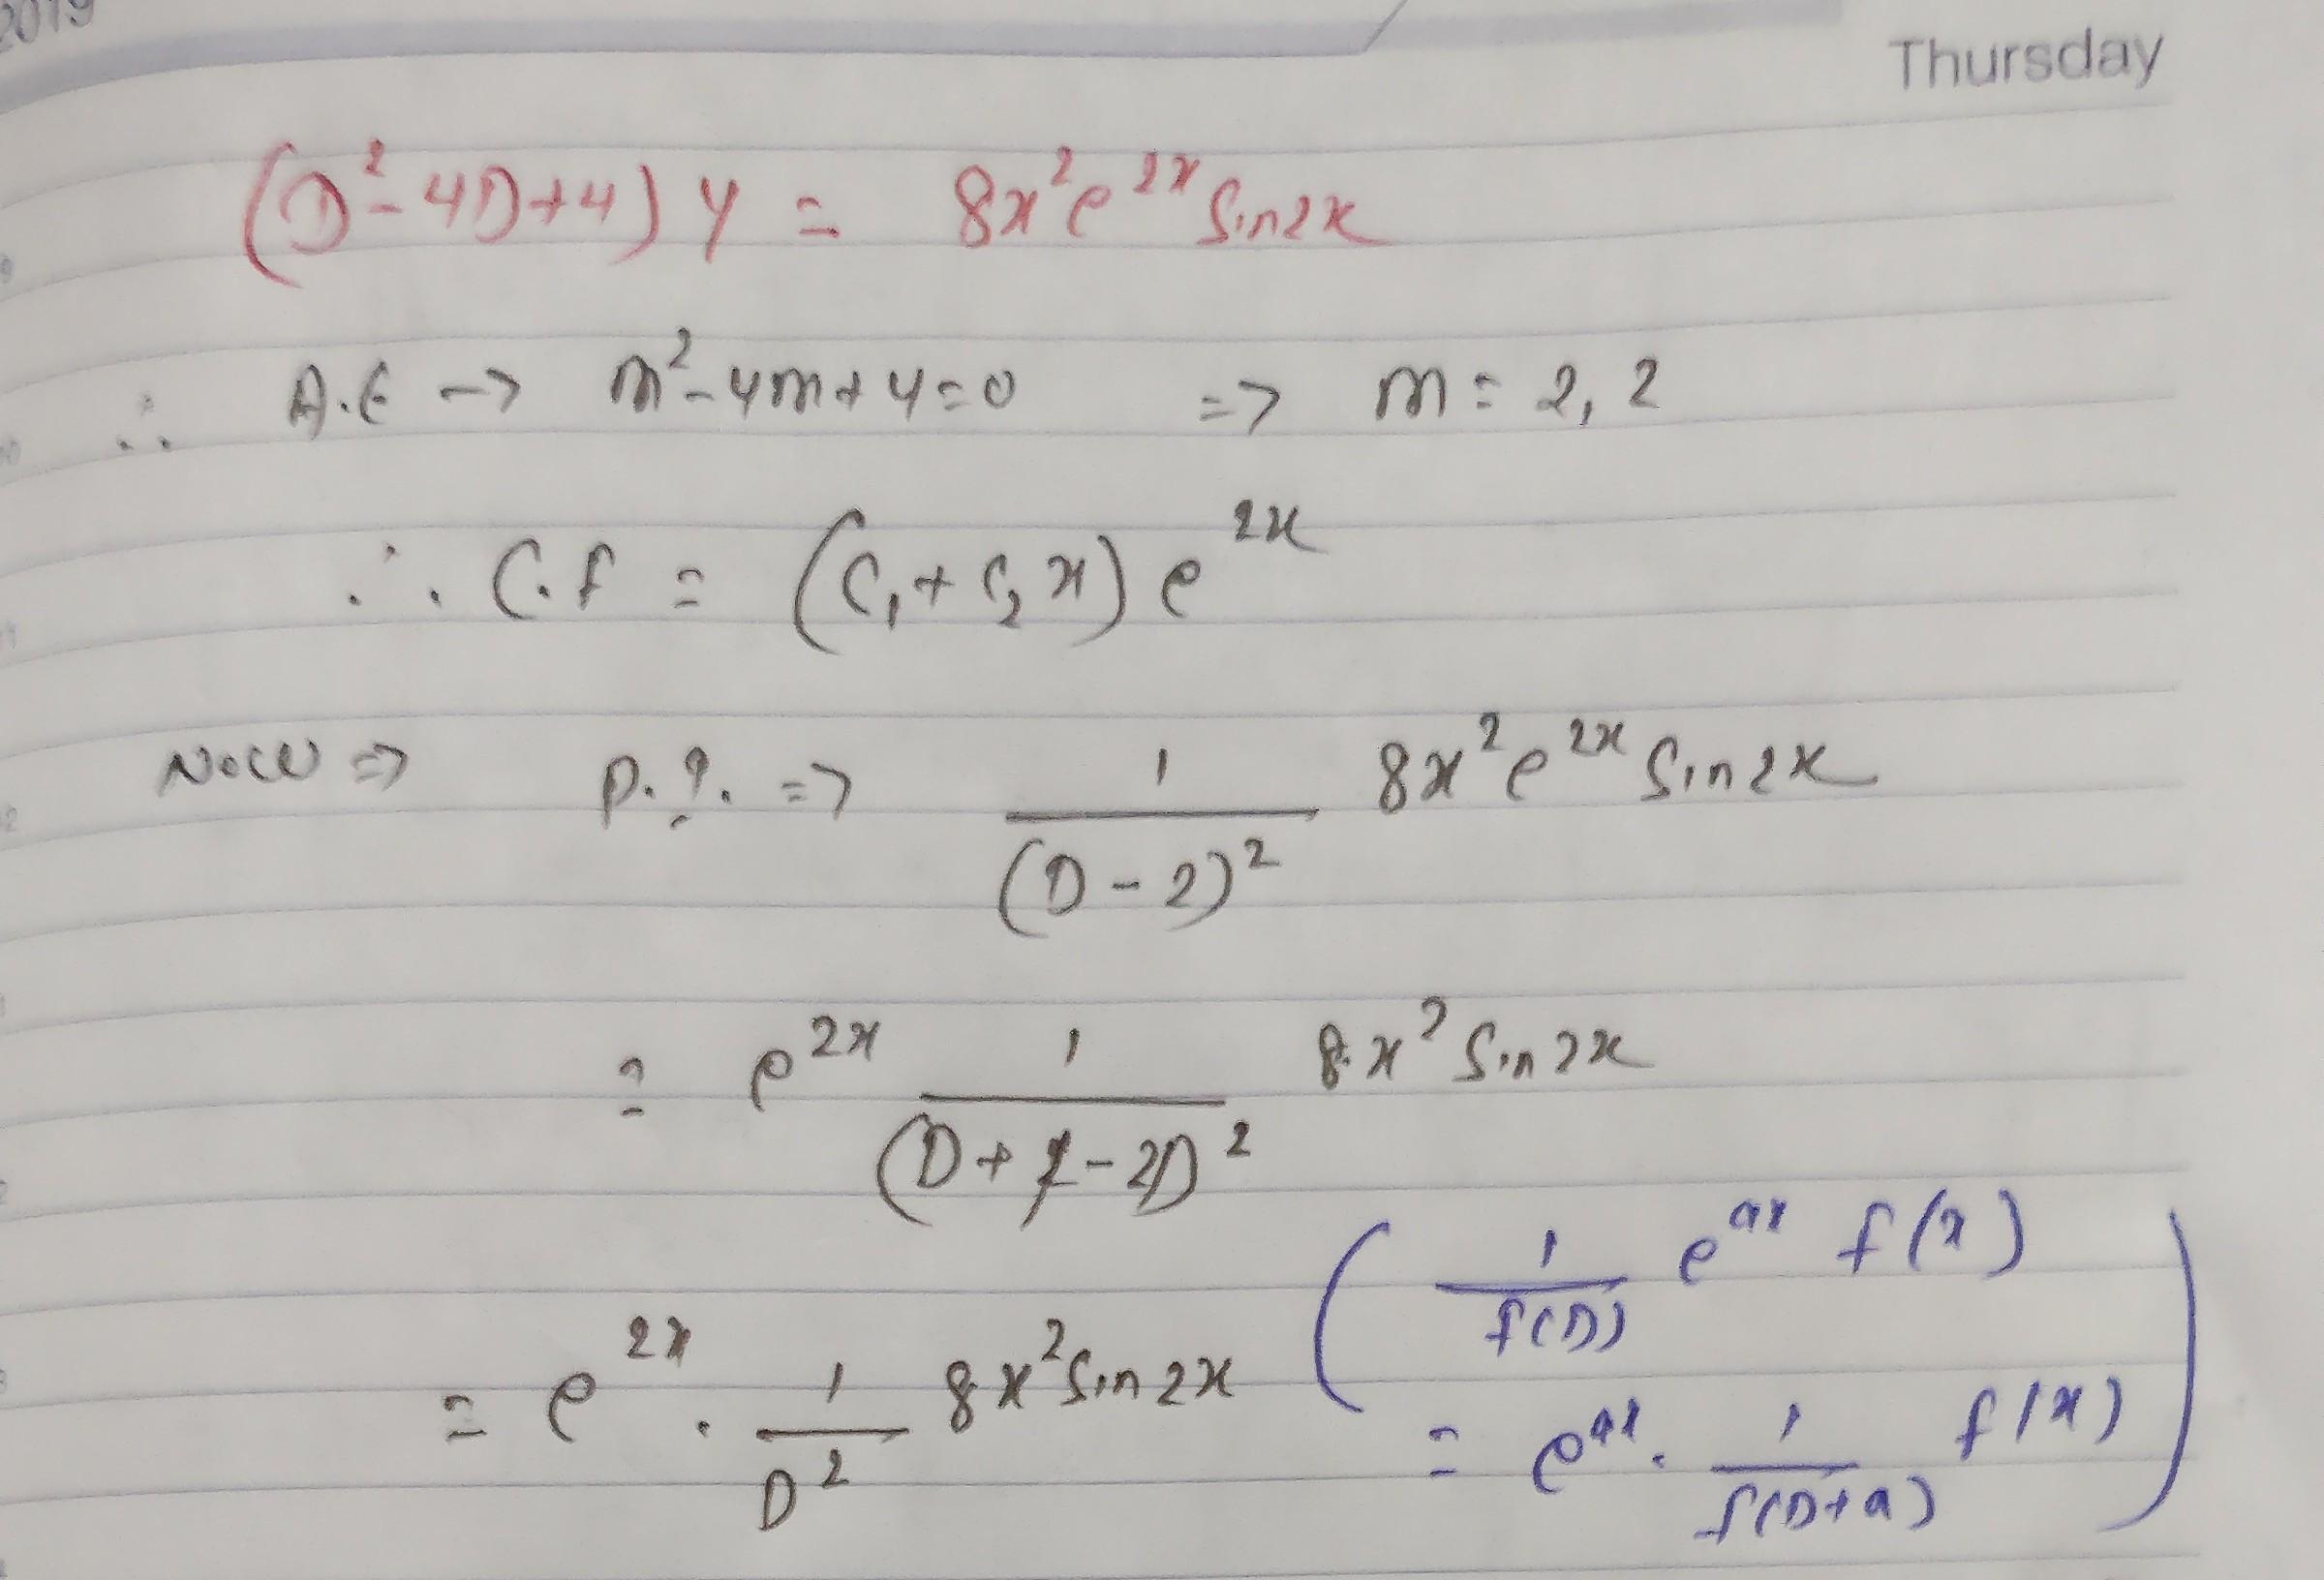 2019
Thursday
(D²-4D+4) y = 8x²e²ˣ Sin2x
∴ A.E → m²-4m+4=0 => m = 2, 2
∴ C.f = (C₁+C₂x) e²ˣ
Now => P.I. => 1/(D-2)² 8x²e²ˣ Sin2x
= e²ˣ 1/(D+2-2)² 8x² Sin2x
= e²ˣ . 1/D² 8x² Sin2x
( 1/f(D) eᵃˣ f(x)
= eᵃˣ . 1/f(D+a) f(x) )